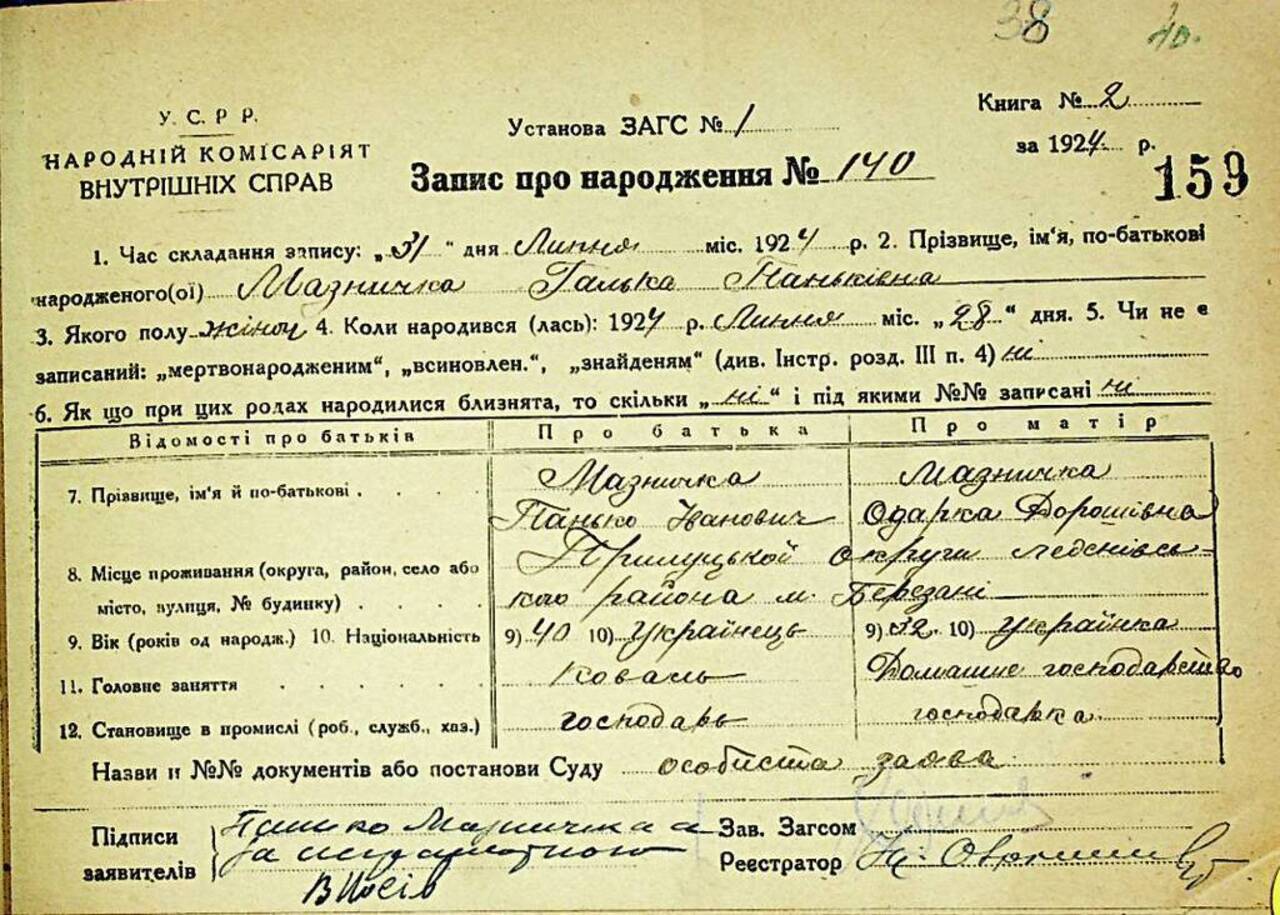 38 40.
У. С. Р Р.
НАРОДНІЙ КОМІСАРІЯТ
ВНУТРІШНІХ СПРАВ
Установа ЗАГС № 1
Книга № 2
за 1924 р.
Запис про народження № 140
159
1. Час складання запису: „31“ дня Липня міс. 1924 р. 2. Прізвище, ім'я, по-батькові
народженого(ої) Мазничка Галька Паньківна
3. Якого полу жіноч 4. Коли народився (лась): 1924 р. Липня міс. „28“ дня. 5. Чи не є
записаний: „мертвонародженим“, „всиновлен.“, „знайденям“ (див. Інстр. розд. III п. 4) ні
6. Як що при цих родах народилися близнята, то скільки „ні“ і під якими №№ записані ні
Відомості про батьків Про батька Про матір
7. Прізвище, ім'я й по-батькові . . . . Мазничка Мазничка
Панько Іванович Одарка Дорошівна
8. Місце проживання (округа, район, село або Прилуцької округи
місто, вулиця, № будинку) . . . . кого района м. Березані
9. Вік (років од народж.) 10. Національність 9) 40 10) Українець 9) 32 10) Українка
11. Головне заняття . . . . . . Коваль Домашнє господарство
12. Становище в промислі (роб., служб., хаз.) господарь господарка
Назви и №№ документів або постанови Суду особиста заява
Підписи
заявителів
Панько Мазничка а
за неграмотною
Зав. Загсом
Реєстратор